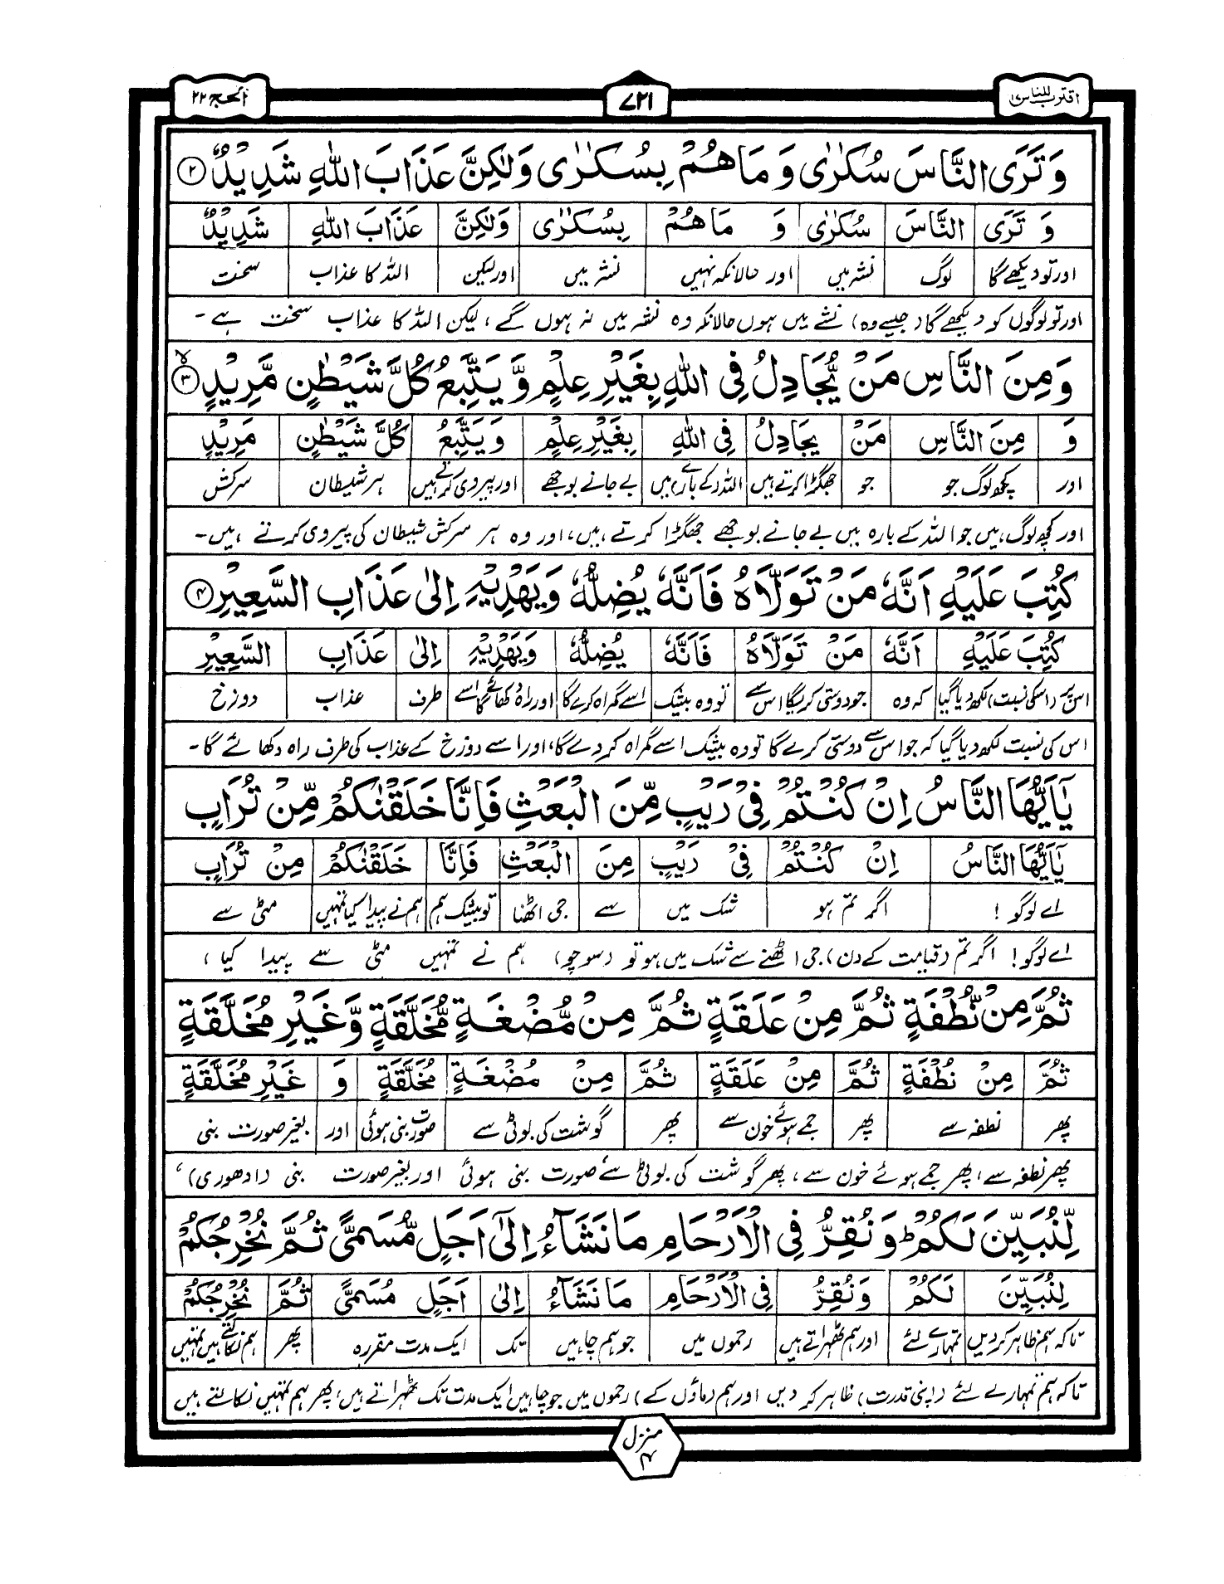 اقترب للناس ۱۷
۷۲۱
الحج ۲۲
وَتَرَى النَّاسَ سُكٰرٰى وَمَا هُمْ بِسُكٰرٰى وَلٰكِنَّ عَذَابَ اللّٰهِ شَدِيْدٌ ۝۲
وَ تَرَى | النَّاسَ | سُكٰرٰى | وَ مَا هُمْ | بِسُكٰرٰى | وَلٰكِنَّ | عَذَابَ اللّٰهِ | شَدِيْدٌ
اور تو دیکھے گا | لوگ | نشہ میں | اور حالانکہ نہیں | نشہ میں | اور لیکن | اللہ کا عذاب | سخت
اور تو لوگوں کو دیکھے گا (جیسے وہ) نشے میں ہوں حالانکہ وہ نشہ میں نہ ہوں گے، لیکن اللہ کا عذاب سخت ہے۔
وَمِنَ النَّاسِ مَنْ يُّجَادِلُ فِى اللّٰهِ بِغَيْرِ عِلْمٍ وَّيَتَّبِعُ كُلَّ شَيْطٰنٍ مَّرِيْدٍ ۝۳
وَ | مِنَ النَّاسِ | مَنْ | يُجَادِلُ | فِى اللّٰهِ | بِغَيْرِ عِلْمٍ | وَيَتَّبِعُ | كُلَّ شَيْطٰنٍ | مَرِيْدٍ
اور | کچھ لوگ جو | جو | جھگڑا کرتے ہیں | اللہ کے بارے میں | بے جانے بوجھے | اور پیروی کرتے ہیں | ہر شیطان | سرکش
اور کچھ لوگ ہیں جو اللہ کے بارہ میں بے جانے بوجھے جھگڑا کرتے ہیں، اور وہ ہر سرکش شیطان کی پیروی کرتے ہیں۔
كُتِبَ عَلَيْهِ اَنَّهٗ مَنْ تَوَلَّاهُ فَاَنَّهٗ يُضِلُّهٗ وَيَهْدِيْهِ اِلٰى عَذَابِ السَّعِيْرِ ۝۴
كُتِبَ عَلَيْهِ | اَنَّهٗ | مَنْ تَوَلَّاهُ | فَاَنَّهٗ | يُضِلُّهٗ | وَيَهْدِيْهِ | اِلٰى | عَذَابِ | السَّعِيْرِ
اس پر (اسکی نسبت) لکھ دیا گیا | کہ وہ | جو دوستی کریگا اس سے | تو وہ بیشک | اسے گمراہ کرے گا | اور راہ دکھائے گا اسے | طرف | عذاب | دوزخ
اس کی نسبت لکھ دیا گیا کہ جو اس سے دوستی کرے گا تو وہ بیشک اسے گمراہ کر دے گا، اور اسے دوزخ کے عذاب کی طرف راہ دکھائے گا۔
يٰۤاَيُّهَا النَّاسُ اِنْ كُنْتُمْ فِىْ رَيْبٍ مِّنَ الْبَعْثِ فَاِنَّا خَلَقْنٰكُمْ مِّنْ تُرَابٍ
يٰۤاَيُّهَا النَّاسُ | اِنْ كُنْتُمْ | فِىْ رَيْبٍ | مِنَ | الْبَعْثِ | فَاِنَّا | خَلَقْنٰكُمْ | مِنْ تُرَابٍ
اے لوگو! | اگر تم ہو | شک میں | سے | جی اٹھنا | تو بیشک ہم | ہم نے پیدا کیا تمہیں | مٹی سے
اے لوگو! اگر تم (قیامت کے دن) جی اٹھنے سے شک میں ہو تو (سوچو) ہم نے تمہیں مٹی سے پیدا کیا،
ثُمَّ مِنْ نُّطْفَةٍ ثُمَّ مِنْ عَلَقَةٍ ثُمَّ مِنْ مُّضْغَةٍ مُّخَلَّقَةٍ وَّغَيْرِ مُخَلَّقَةٍ
ثُمَّ | مِنْ نُطْفَةٍ | ثُمَّ | مِنْ عَلَقَةٍ | ثُمَّ | مِنْ مُضْغَةٍ | مُخَلَّقَةٍ | وَ | غَيْرِ مُخَلَّقَةٍ
پھر | نطفہ سے | پھر | جمے ہوئے خون سے | پھر | گوشت کی بوٹی سے | صورت بنی ہوئی | اور | بغیر صورت بنی
پھر نطفہ سے، پھر جمے ہوئے خون سے، پھر گوشت کی بوٹی سے صورت بنی ہوئی اور بغیر صورت بنی (ادھوری)،
لِّنُبَيِّنَ لَكُمْ ؕ وَنُقِرُّ فِى الْاَرْحَامِ مَا نَشَآءُ اِلٰۤى اَجَلٍ مُّسَمًّى ثُمَّ نُخْرِجُكُمْ
لِنُبَيِّنَ | لَكُمْ | وَنُقِرُّ | فِى الْاَرْحَامِ | مَا نَشَآءُ | اِلٰى | اَجَلٍ مُسَمًّى | ثُمَّ | نُخْرِجُكُمْ
تاکہ ہم ظاہر کردیں | تمہارے لئے | اور ہم ٹھہراتے ہیں | رحموں میں | جو ہم چاہیں | تک | ایک مدت مقررہ | پھر | ہم نکالتے ہیں تمہیں
تاکہ ہم تمہارے لئے (اپنی قدرت) ظاہر کر دیں اور ہم (ماؤں کے) رحموں میں جو چاہیں ایک مدت تک ٹھہراتے ہیں، پھر ہم تمہیں نکالتے ہیں
منزل
۴